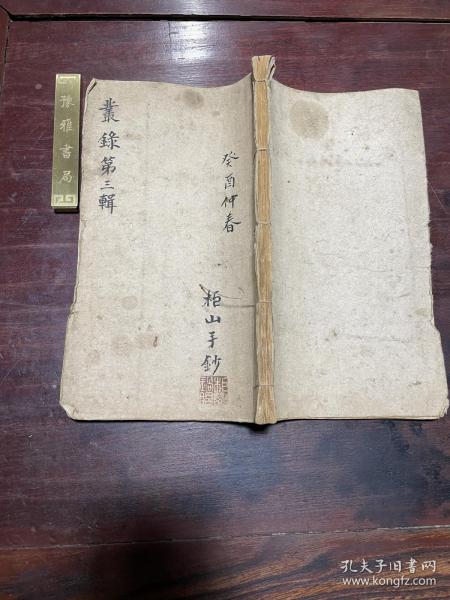 叢錄第三輯
癸酉仲春
柜山手鈔
豫雅書局
孔夫子旧书网
www.kongfz.com